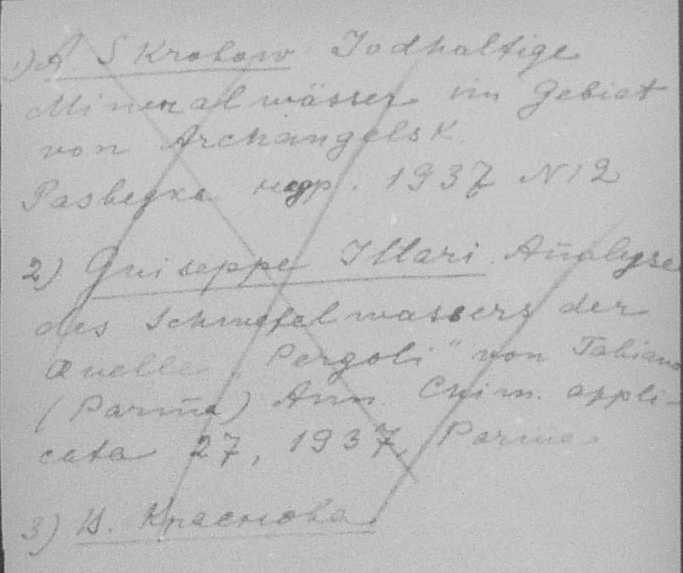 1) A S Krobow Jodhaltige
Mineralwässer im Gebiet
von Archangelsk.
Разведка недр. 1937 N12
2) Guiseppe Illari. Analyse
des Schwefelwassers der
Quelle „Pergoli“ von Tabiano
(Parma) Ann. Chim. appli-
cata 27, 1937, Parma
3) И. Краснова